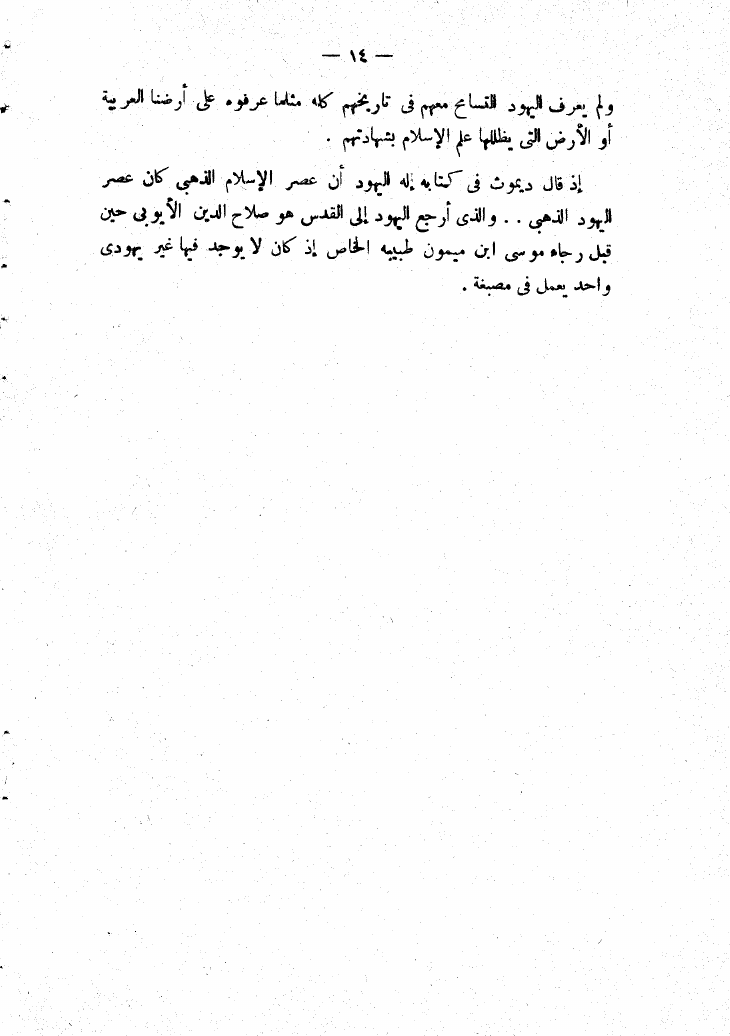 — ١٤ —
ولم يعرف اليهود التسامح معهم فى تاريخهم كله مثلما عرفوه على أرضنا العربية
أو الأرض التى يظللها علم الإسلام بشهادتهم .
إذ قال ديموث فى كتابه إله اليهود أن عصر الإسلام الذهبى كان عصر
اليهود الذهبى . . والذى أرجع اليهود إلى القدس هو صلاح الدين الأيوبى حين
قبل رجاء موسى ابن ميمون طبيبه الخاص إذ كان لا يوجد فيها غير يهودى
واحد يعمل فى مصبغة .